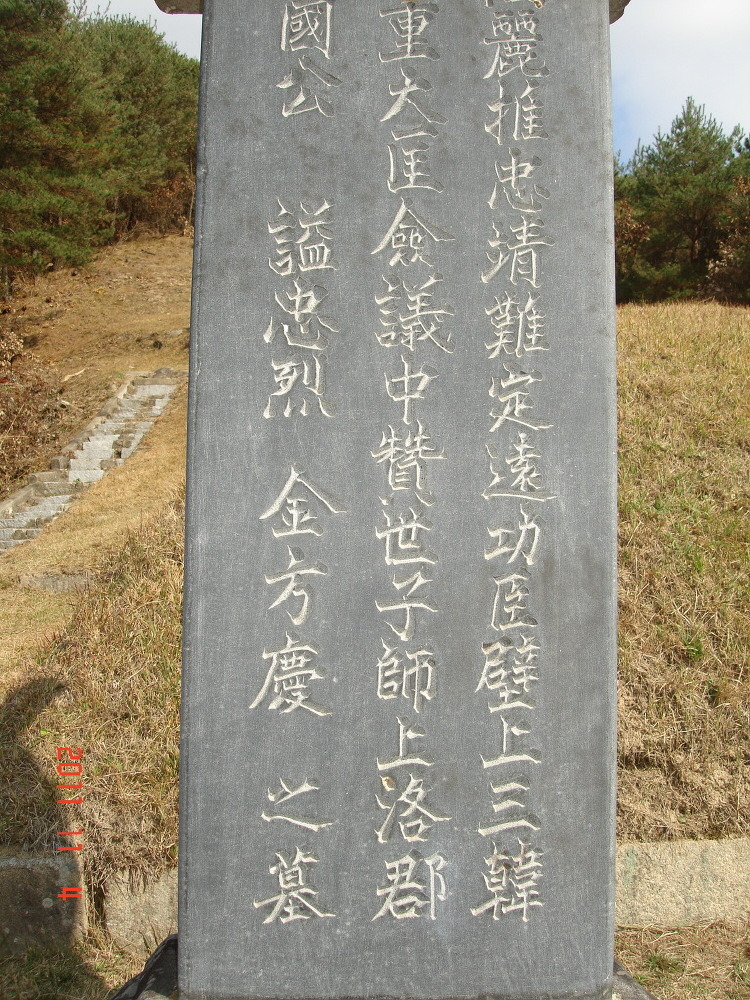 麗推忠靖難定遠功臣壁上三韓
重大匡僉議中贊世子師上洛郡
國公 諡忠烈 金方慶 之墓
2011 11 4